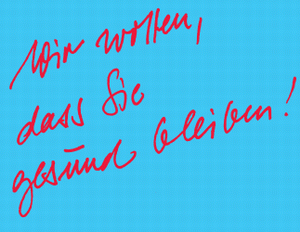 Wir wollen,
dass Sie
gesund bleiben!